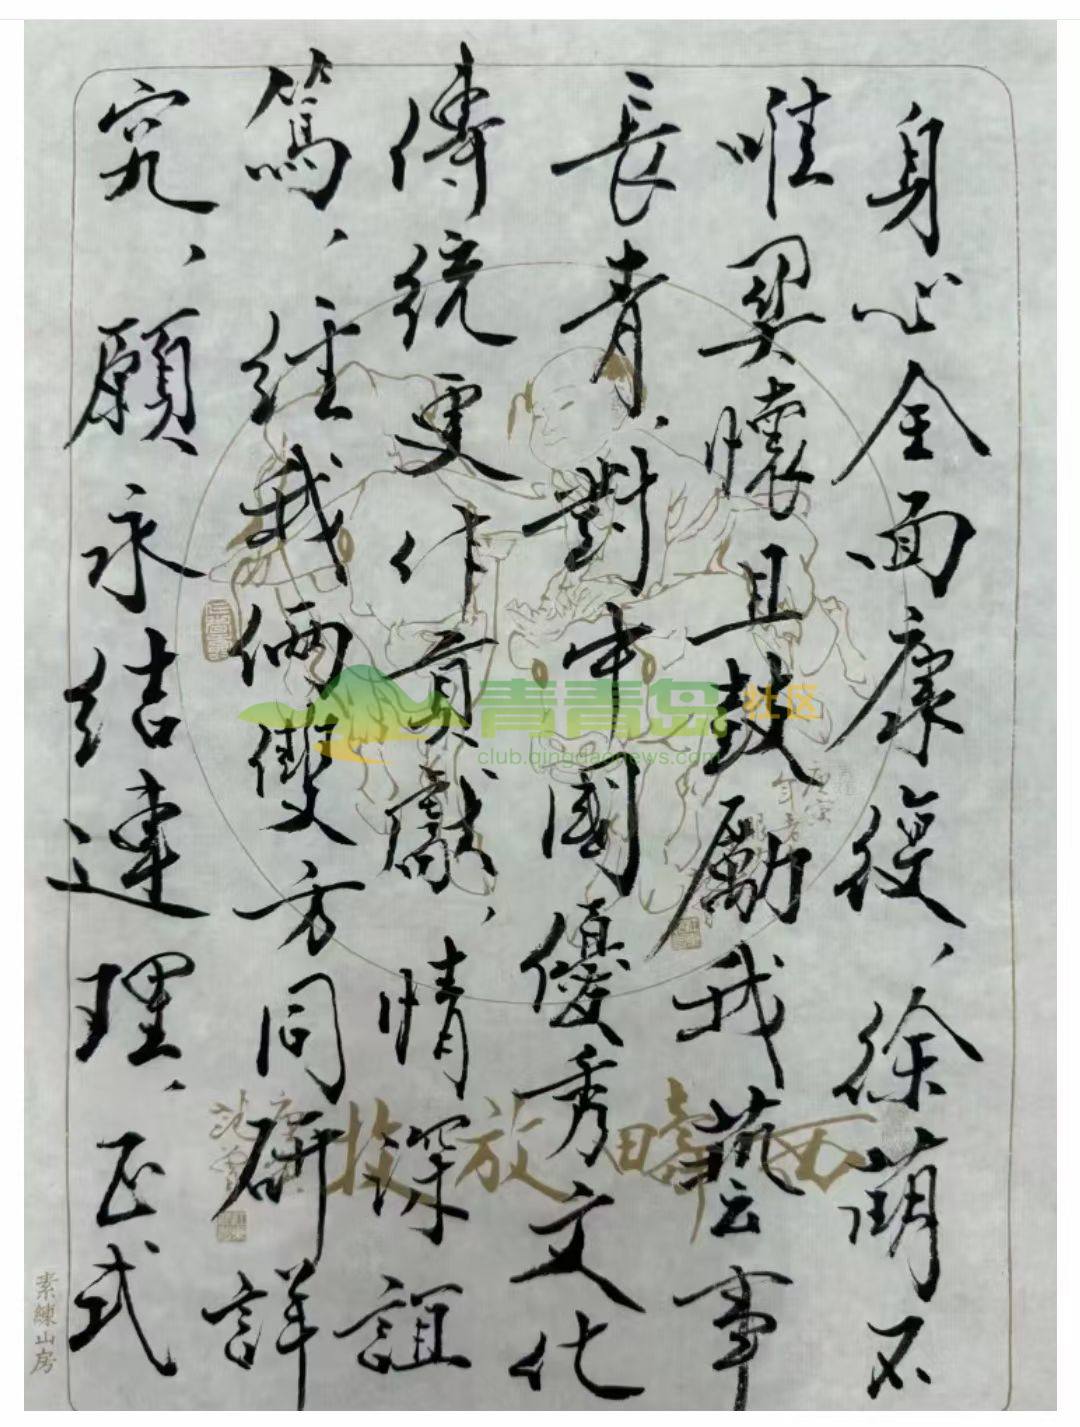 身心全面康復、徐萌不
唯異懷且鼓勵我藝事
長青、對中國優秀文化
傳統更作貢獻、情深誼
篤、經我倆雙方同研詳
究、願永結連理、正式
西疇放牧
素練山房
青青岛社区
club.qingdaonews.com